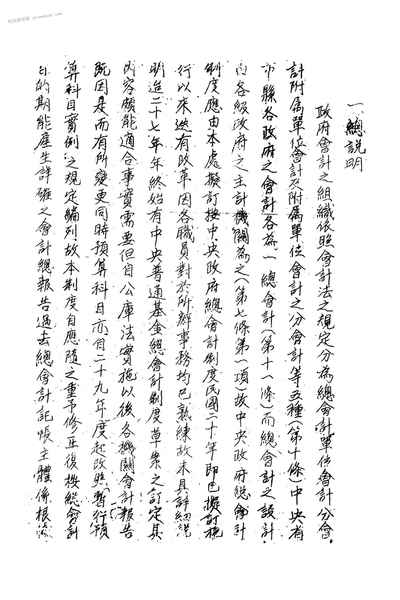 一總說明
政府會計之組織依照會計法之規定分為總會計單位會計分會
計附屬單位會計及附屬單位會計之分會計等五種(第十條)中央省
市縣各政府之會計各為一總會計(第十一條)而總會計之設計
由各級政府之主計機關為之(第七條第一項按中央政府總會計
制度應由本處擬訂按中央政府總會計制度民國二十年即已擬訂施
行以來迭有改革因各職員對於所辦事務均已熟練故未具詳細說
明迨二十七年年終始有中央普通基金總會計制度草案之訂定其
內容頗能適合事實需要但自公庫法實施以後各機關會計報告
既因是而有所變更同時預算科目亦自二十九年度起改照「暫行預
算科目實例」之規定編列故本制度自應隨之重予修正後按總會計
目的期能產生詳確之會計總報告過去總會計記帳主體係根據